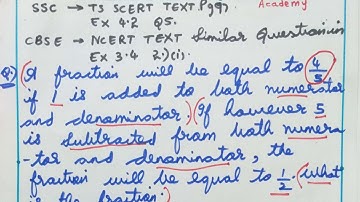 SSC → TS SCERT TEXT Pg97. Academy
Ex 4.2 Q5.
CBSE → NCERT TEXT Similar Question in
Ex 3.4 2.)(i).
Q. A fraction will be equal to 4/5
if 1 is added to both numerator
and denominator, If however 5
is subtracted from both numera
-tor and denominator, the
fraction will be equal to 1/2. What
is the fraction